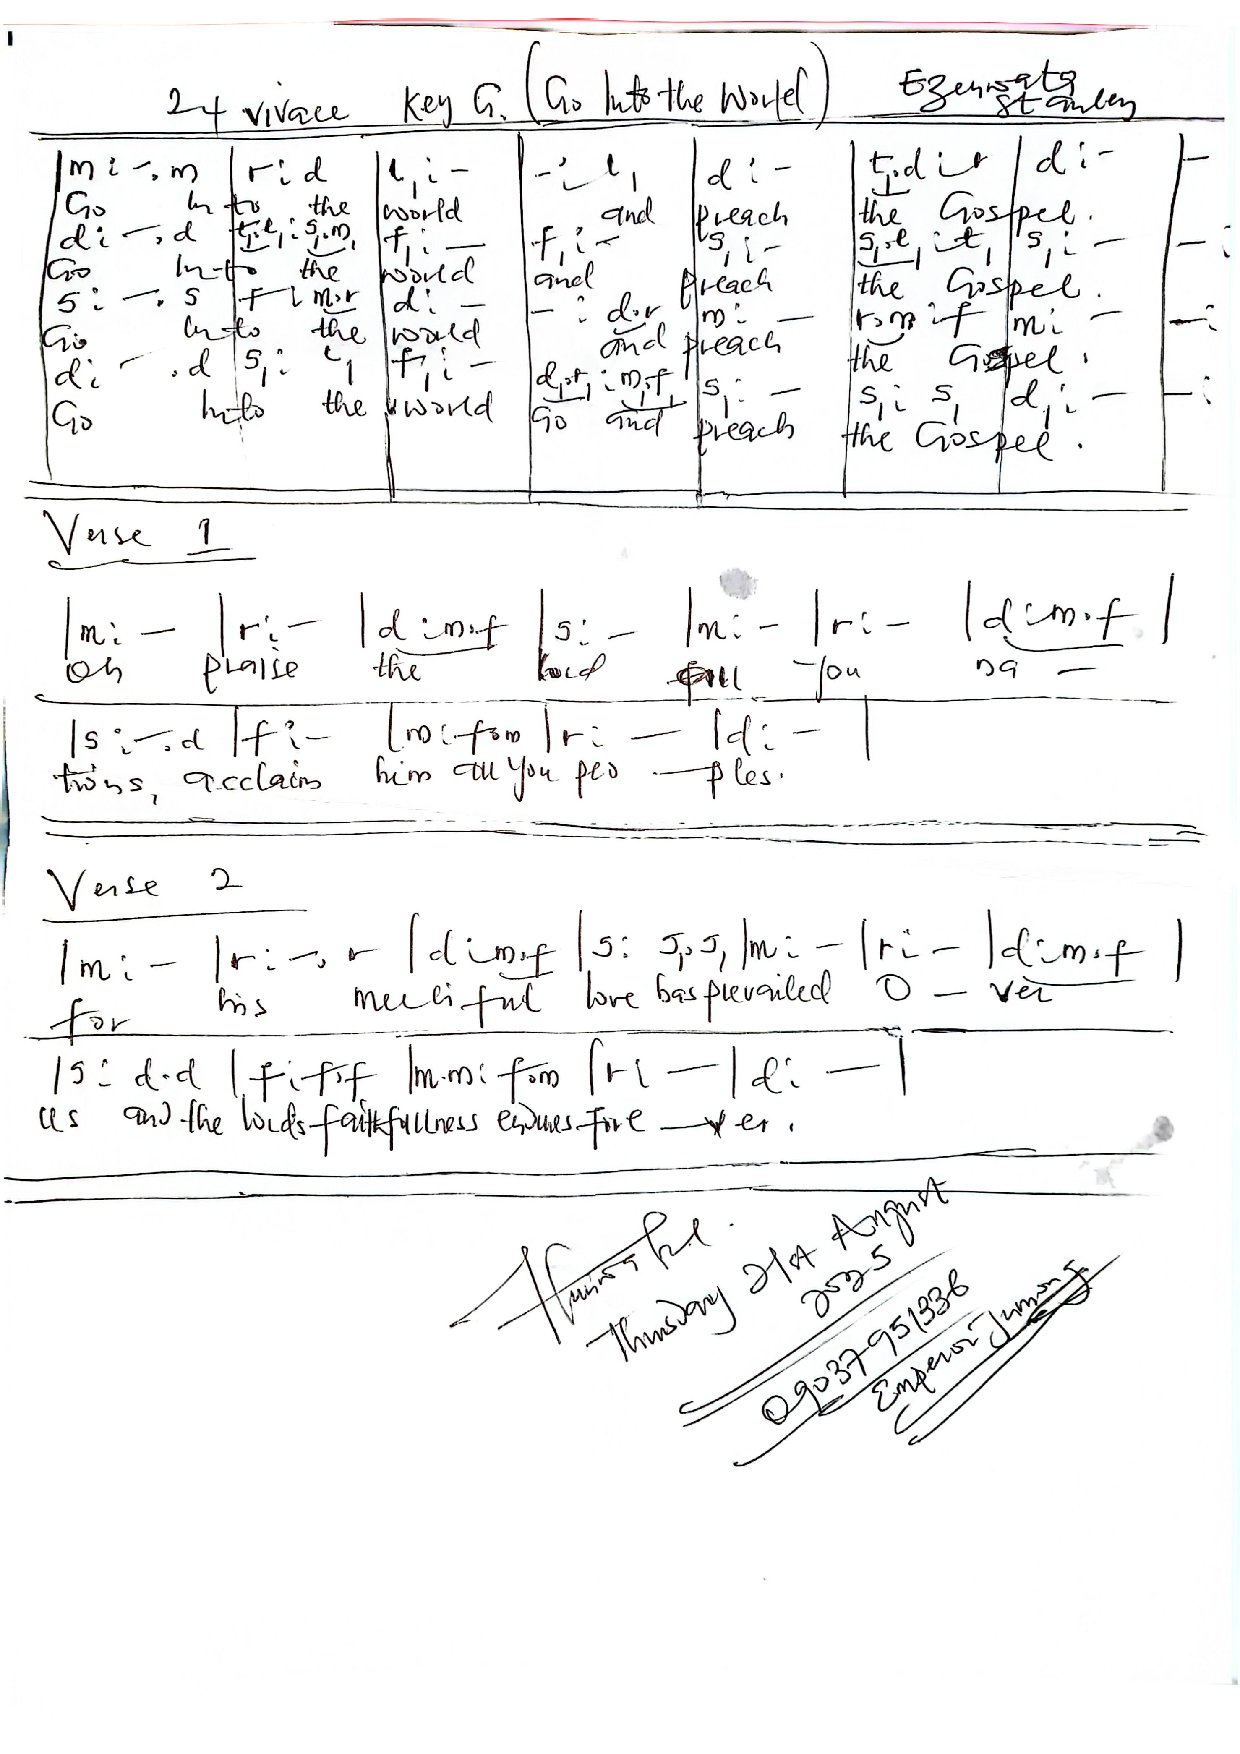 24 vivace Key G. (Go Into the World) Ezenwata Stanley
|m : -. m |r : d |l₁ : - |- : l₁ |d : - |t₁.d : r |d : - |-
Go In-to the world and preach the Gospel.
d : -. d |t₁.l₁ : s₁.m₁ |f₁ : - |f₁ : - |s₁ : - |s₁.l₁ : t₁ |s₁ : - |- :
Go In-to the world and preach the Gospel.
s : -. s |f : m.r |d : - |- : d.r |m : - |r.m : f |m : - |- :
Go In-to the world and preach the Gospel.
d : -. d |s₁ : l₁ |f₁ : - |d₁.r₁ : m₁.f₁ |s₁ : - |s₁ : s₁ |d₁ : - |- :
Go In-to the world Go and preach the Gospel.
Verse 1
|m : - |r : - |d : m.f |s : - |m : - |r : - |d : m.f |
Oh praise the Lord all you na -
|s : -. d |f : - |m : f.m |r : - |d : - |
tions, acclaim him all you peo - ples.
Verse 2
|m : - |r : -. r |d : m.f |s : s₁.s₁ |m : - |r : - |d : m.f |
for his merciful love has prevailed O - ver
|s : d.d |f : f.f |m.m : f.m |r : - |d : - |
us and the lords faithfullness endures fore - ver.
Thursday 21st August
2025
09037951336
Emperor Jumong